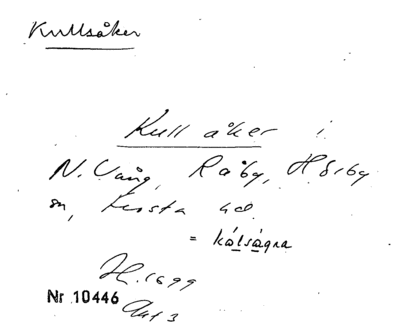 Kullsåker
Kull åker i
N. Vång, Råby, Hörby
sn, Frosta hd.
= kålsågna
H. 1699
Nr 10446
Akt 3